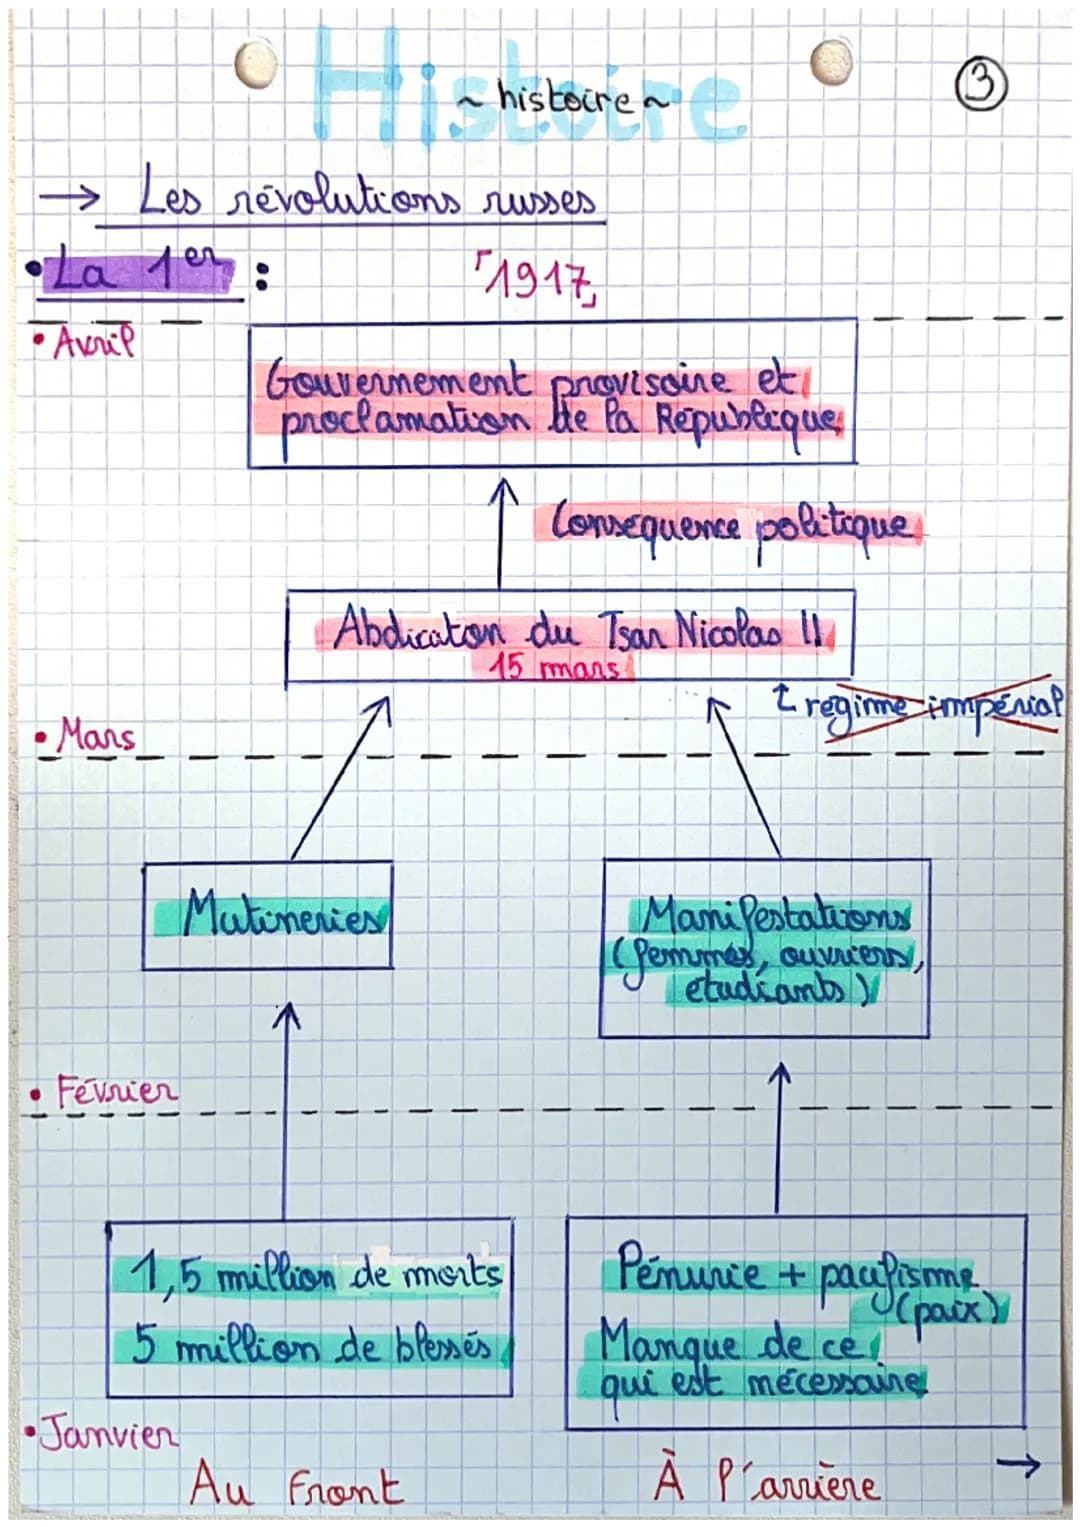 Histoire
~ histoire ~
3
→ Les révolutions russes
• La 1er :
「1917」
• Avril
Gouvernement provisoire et
proclamation de la République
Conséquence politique
Abdicaton du Tsar Nicolas II
15 mars
régime impérial
• Mars
Mutineries
Manifestations
(femmes, ouvriers,
étudiants)
• Février
1,5 million de morts
5 million de blessés
Pénurie + pacifisme
(paix)
Manque de ce
qui est nécessaire
• Janvier
Au Front
À l'arrière